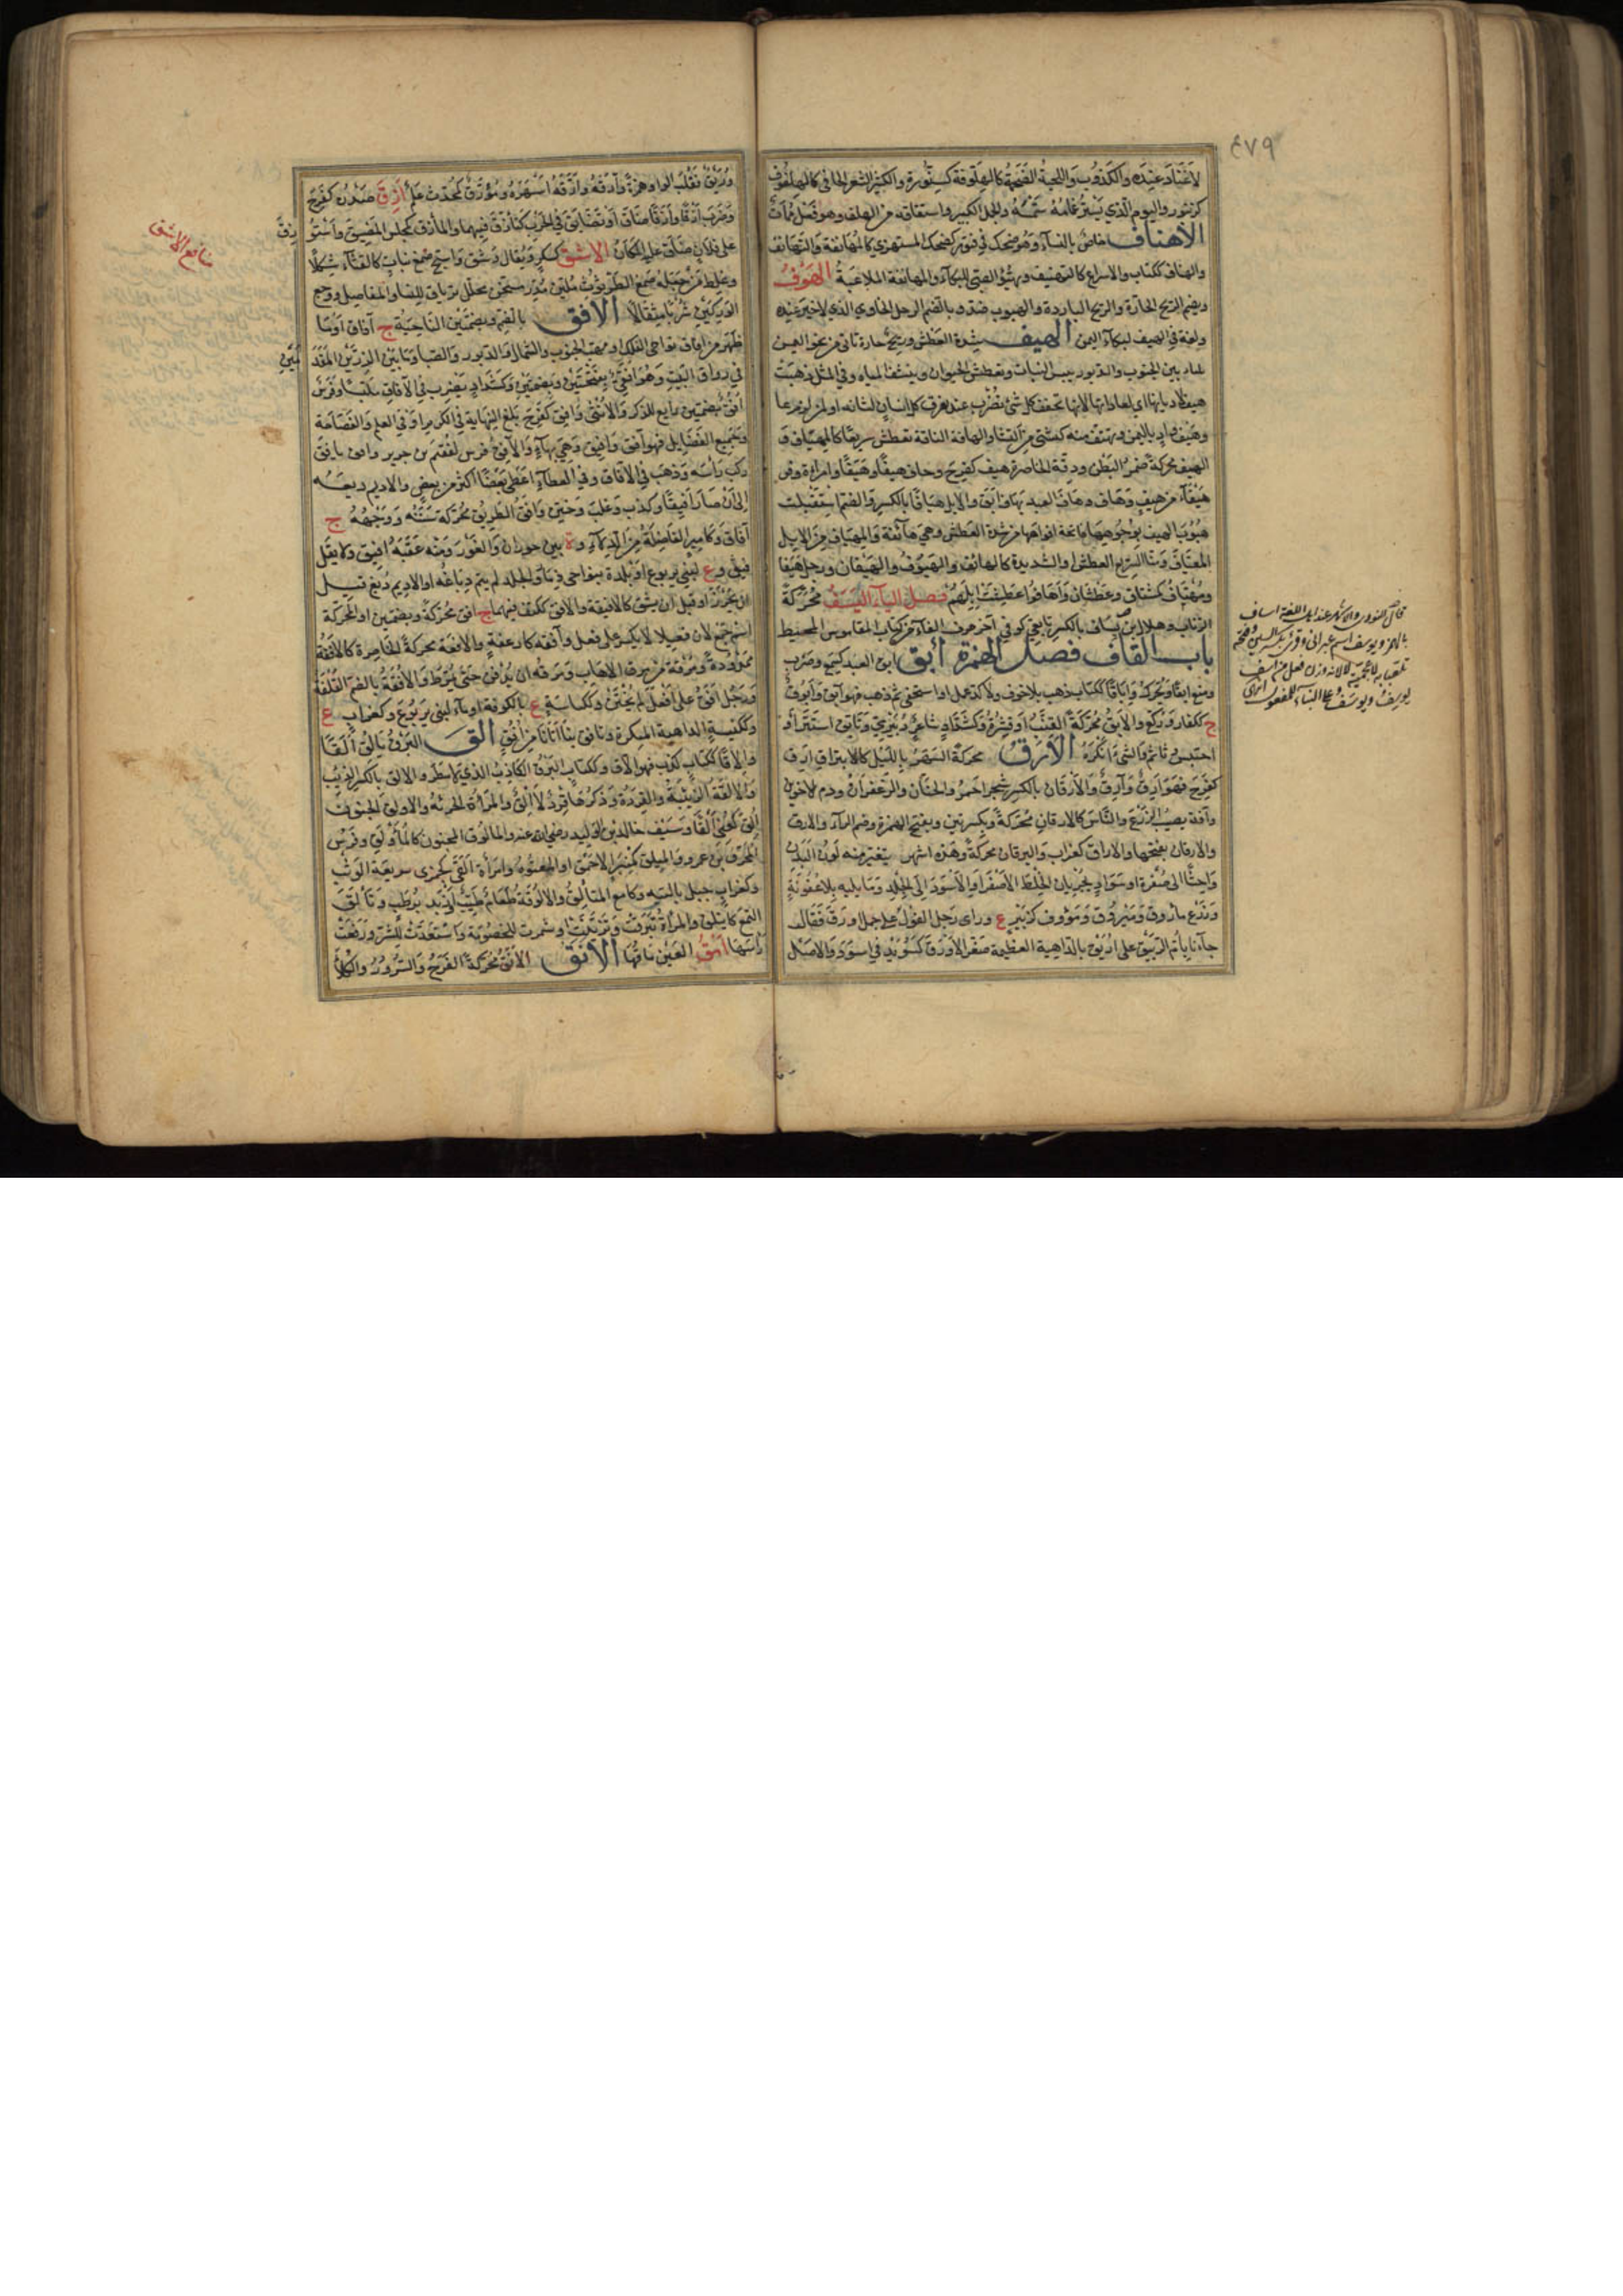 ٤٧٩
لا غناء عنده والكذوب واللحية الضخمة كالهلوفة كسنورة والكثير الشعر الجافي كالهلفوف
كزنبور واليوم الذي يستر غمامه شمسه والجمل الكبير واشتقاقه من الهلف وهو فعل ممات
الاهناف خاص بالنساء وهو ضحك في فتور كضحك المستهزئ كالمهانفة والتهانف
والهناف ككتاب والاسراع كالتهنيف وتهيؤ الصبي للبكاء والمهانفة الملاعبة الهوف
ويضم الريح الحارة والريح الباردة والهبوب ضد وبالضم الرجل الخاوي الذي لا خير عنده
ولغة في الهيف لنكباء اليمن الهيف شدة العطش وريح حارة تأتي من نحو اليمن
نكباء بين الجنوب والدبور تيبس النبات وتعطش الحيوان وتنشف المياه وفي المثل ذهبت
هيف لاديانها اي لعاداتها لانها تجفف كل شيء يضرب عند تفرق كل انسان لشانه او لمن لزم عادته
وهيف واد باليمن
الهيف محركة ضمر البطن ورقة الخاصرة هيف كفرح وخاف هيفا وهيفا وامرأة وفرس
هيفاء من هيف وهاف وهاف العبد يهاف ابق والابل هيافا بالكسر والضم استقبلت
هبوب الهيف بوجوهها فاتحة افواهها من شدة العطش وهي هائفة والمهياف من الابل
المعناق ومنا السريع العطش او الشديده كالهائف والهيوف والهيفان ورجل هيفان
ومهتاف كمشتاق وعطشان واهافوا عطشت ابلهم فصل الياء اليسف محركة
الذباب وهلال بن يساف بالكسر تابعي كوفي آخر حرف الفاء من كتاب القاموس المحيط
باب القاف فصل الهمزة أبق ابق العبد كسمع وضرب
ومنع ابقا ويحرك واباقا ككتاب ذهب بلا خوف ولا كد عمل او استخفى ثم ذهب فهو آبق وابوق
ج ككفار وركع والابق محركة القنب او قشره وكشداد شاعر دبيري وتأبق استتر او
احتبس وتأثم والشيء انكره الارق محركة السهر بالليل كالائتراق ارق
كفرح فهو ارق وآرق والارقان بالكسر شجر احمر والحناء والزعفران ودم الاخوين
وآفة يصيب الزرع والناس كالارقان محركة وبكسرتين وبفتح الهمزة وضم الراء والارق
والارقان بفتحهما والاراق كغراب واليرقان محركة وهذه اشهر يتغير منه لون البدن
فاحشا الى صفرة او سواد بجريان الخلط الاصفر او الاسود الى الجلد وما يليه بلا عفونة
وزرع مأروق وميروق ومؤوف كزبير ع ورأى رجل الغول على جمل اورق فقال
جاءنا بأم الربيق على اريق بالداهية العظيمة صغر الاورق كسويد في اسود والاصل
وريق تقلب الواو همزة وآرقه وارقه اسهره ومؤرق كمحدث علم ازق صدره كفرح
وضرب ازقا وازقا ضاق او تضايق في الحرب كتازق فيهما والمأزق كمجلس المضيق واستوزق
على فلان ضاق عليه المكان الاشق كسكر ويقال وشق واشج صمغ نبات كالقثاء شكلا
وغلط من جعله صمغ الطرثوث ملين مدر مسخن محلل ترياق للنسا والمفاصل ووجع
الوركين شربا مثقالا الافق بالضم وبضمتين الناحية ج آفاق او ما
ظهر من نواحي الفلك او مهب الجنوب والشمال والدبور والصبا وما بين الزرين المقدمين
في رواق البيت وهو افقي بفتحتين وبضمتين وكشداد يضرب في الآفاق مكتسبا وفرس
افق بضمتين رايع للذكر والانثى وافق كفرح بلغ النهاية في الكرم او في العلم والفصاحة
وجميع الفضايل فهو آفق وافيق وهي بهاء والآفق فرس لفقيم بن جرير وافق يأفق
ركب رأسه وذهب في الآفاق وفي العطاء اعطى بعضا اكثر من بعض والاديم دبغه
الى ان صار افيقا وكذب وغلب وختن وافق الطريق محركة سننه ووجهه ج
آفاق وكامير الفاضلة من الدلاء و ة بين حوران والغور ومنه عقبة افيق ولا يقل
فيق و ع لبني يربوع او بلدة بنواحي ذمار والجلد لم يتم دباغه او الاديم دبغ قبل
ان يخرز او قبل ان يشق كالافيقة والافق ككتف فيهما ج افق محركة وبضمتين او المحركة
اسم جمع لان فعيلا لا يكسر على فعل وآفقة كارغفة والافقة محركة الخاصرة كالآفقة
ممدودة ومرقة من مرق الاهاب ومرقه ان يدفن حتى يمرط والافقة بالضم القلفة
ورجل آفق على افعل لم يختن وككناسة ع بالكوفة او ماء لبني يربوع وكغراب ع
وككنيسة الداهية المنكرة وتافق بنا اتانا من افق الق البرق يالق القا
والاقا ككتاب كذب فهو الاق وككتاب البرق الكاذب الذي لا مطر له والالق بالكسر الذئب
والالقة الذئبة والقردة وذكرها قرد لا الق والمرأة الجريئة والاولق الجنون
الق كعني القا وسيف خالد بن الوليد رضي الله عنه والمألوق المجنون كالمأولق وفرس
المحرق بن عمرو والميلق كمنبر الاحمق او المعتوه وامرأة القى كجمزى سريعة الوثب
وكغراب جبل بالتيه وكامع المتالق والالوقة طعام طيب او زبد برطب وتألق
التمع كايتلق والمرأة تبرقت وتزينت او شمرت للخصومة واستعدت للشر ورفعت
رأسها امق العين ماقها الانق الانق محركة الفرح والسرور والكلأ
منافع الاشق